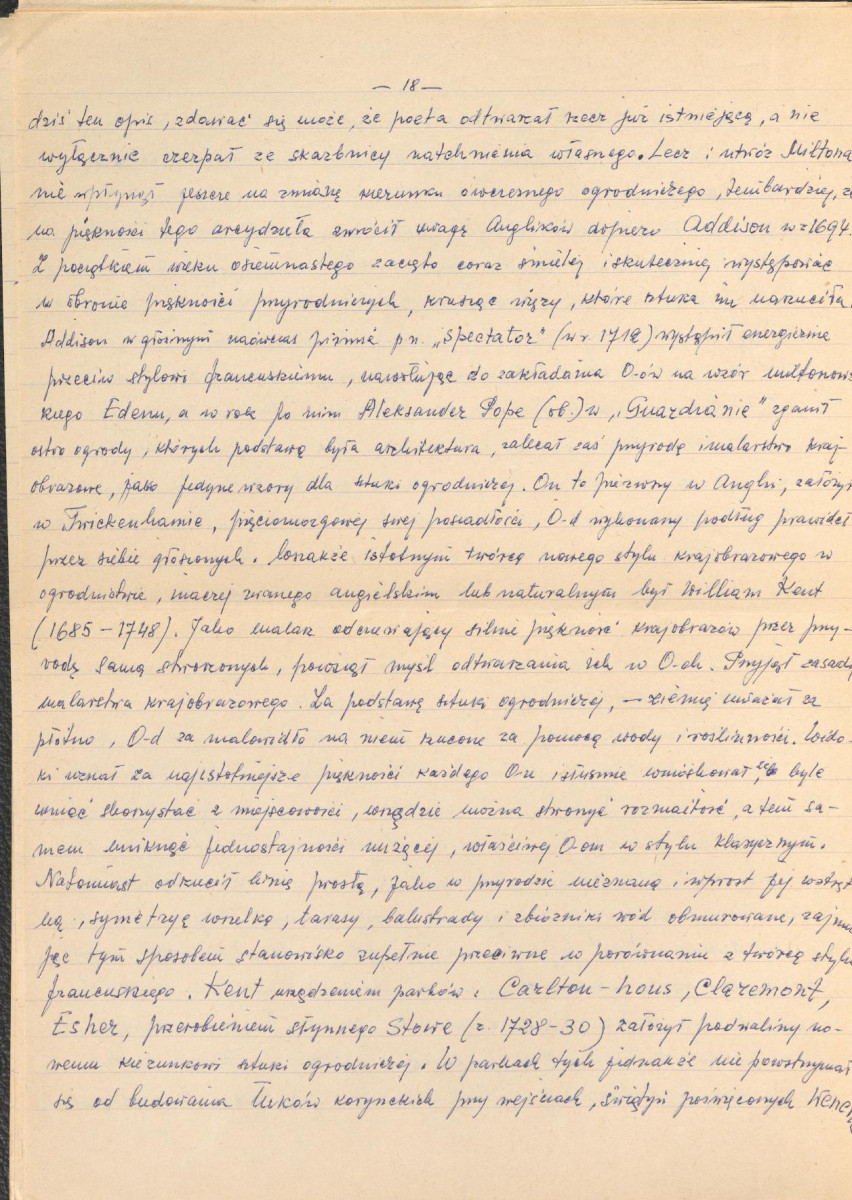 — 18 —
dziś ten opis, zdawać się może, że poeta odtwarzał rzecz już istniejącą, a nie
wyłącznie czerpał ze skarbnicy natchnienia własnego. Lecz i utwór Miltona
nie wpłynął jeszcze na zmianę kierunku ówczesnego ogrodniczego, tembardziej, że
na piękności tego arcydzieła zwrócił uwagę Anglików dopiero Addison w r 1694.
Z początkiem wieku osiemnastego zaczęto coraz śmielej i skuteczniej występować
w obronie piękności przyrodniczych, krusząc więzy, które sztuka im narzuciła.
Addison w głośnym naówczas piśmie p n. „Spectator" (w r. 1712) wystąpił energicznie
przeciw stylowi francuskiemu, nawołując do zakładania O-ów na wzór miltonows-
kiego Edenu, a w rok po nim Aleksander Pope (ob.) w „Guardianie" zganił
ostro ogrody, których podstawą była architektura, zalecał zaś przyrodę i malarstwo kraj-
obrazowe, jako jedyne wzory dla sztuki ogrodniczej. On to pierwszy w Anglii, założył
w Twickenhamie, pięciomorgowej swej posiadłości, O-d wykonany podług prawideł
przez siebie głoszonych. Wszakże istotnym twórcą nowego stylu krajobrazowego w
ogrodnictwie, inaczej zwanego angielskim lub naturalnym był William Kent
(1685 – 1748). Jako malarz odczuwający silnie piękność krajobrazów przez przy-
rodę samą stworzonych, powziął myśl odtwarzania ich w O-ch. Przyjął zasady
malarstwa krajobrazowego. Za podstawę sztuki ogrodniczej, — ziemię uważał za
płótno, O-d za malowidło na niem rzucone za pomocą wody i roślinności. Wido-
ki uznał za najistotniejsze piękności każdego O-u i słusznie wnioskował, że byle
umieć skorzystać z miejscowości, wszędzie można stworzyć rozmaitość, a tem sa-
mem uniknąć jednostajności nużącej, właściwej O-om w stylu klasycznym.
Natomiast odrzucił linię prostą, jako w przyrodzie nieznaną i wprost jej wstręt-
ną, symetrję wszelką, tarasy, balustrady i zbiorniki wód obmurowane, zajmu-
jąc tym sposobem stanowisko zupełnie przeciwne w porównaniu z twórcą stylu
francuskiego. Kent urządzeniem parków: Carlton-hous, Claremont,
Esher, przerobieniem słynnego Stowe (r. 1728-30) założył podwaliny no-
wemu kierunkowi sztuki ogrodniczej. W parkach tych jednakże nie powstrzymał
się od budowania łuków korynckich przy wejściach, świątyń poświęconych